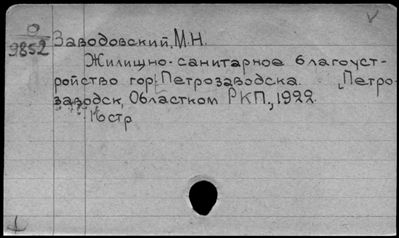 0
9852
Заводовский, М.Н.
Жилищно-санитарное благоуст-
ройство гор. Петрозаводска. Петро-
заводск, Областком РКП., 1922.
16 стр